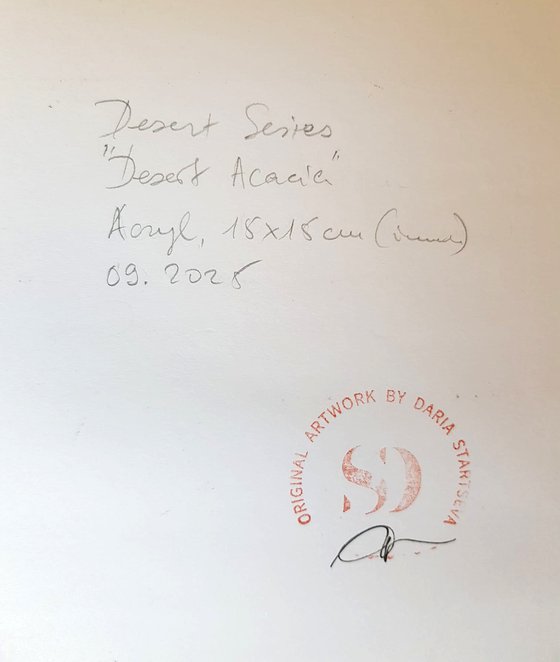 Desert Series
"Desert Acacia"
Acryl, 15x15cm
09. 2025
ORIGINAL ARTWORK BY DARIA STARTSEVA
SD